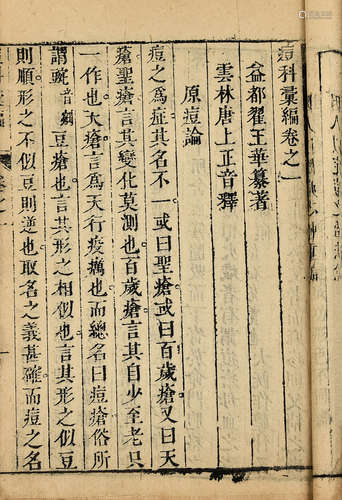 痘科彙編卷之一
益都翟王華纂著
雲林唐上正音釋
原痘論
痘之為症其名不一或曰聖瘡或曰百歲瘡又曰天
瘡聖瘡言其變化莫測也百歲瘡言其自少至老只
一作也天瘡言為天行疫癘也而總名曰痘瘡俗所
謂豌音剜豆瘡也言其形之相似也言其形之似豆
則順形之不似豆則逆也取名之義甚確而痘之名